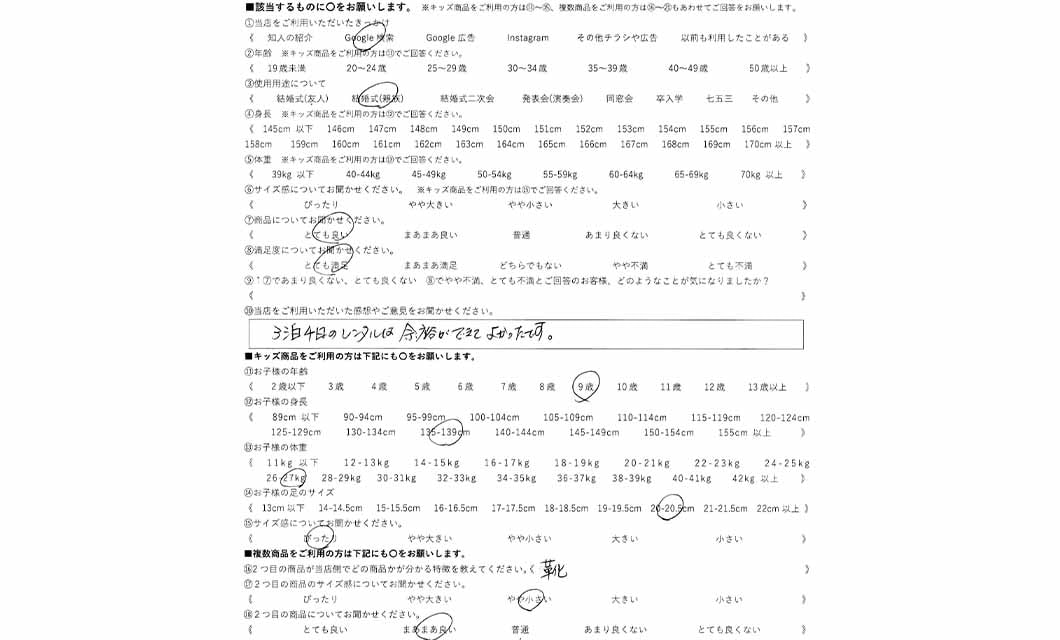 ■該当するものに○をお願いします。 ※キッズ商品をご利用の方は⑪～⑮、複数商品をご利用の方は⑯～㉑もあわせてご回答をお願いします。
①当店をご利用いただいたきっかけ
《 知人の紹介 Google 検索 Google 広告 Instagram その他チラシや広告 以前も利用したことがある 》
②年齢 ※キッズ商品をご利用の方は⑪でご回答ください。
《 19歳未満 20～24歳 25～29歳 30～34歳 35～39歳 40～49歳 50歳以上 》
③使用用途について
《 結婚式(友人) 結婚式(親族) 結婚式二次会 発表会(演奏会) 同窓会 卒入学 七五三 その他 》
④身長 ※キッズ商品をご利用の方は⑫でご回答ください。
《 145cm 以下 146cm 147cm 148cm 149cm 150cm 151cm 152cm 153cm 154cm 155cm 156cm 157cm
158cm 159cm 160cm 161cm 162cm 163cm 164cm 165cm 166cm 167cm 168cm 169cm 170cm 以上 》
⑤体重 ※キッズ商品をご利用の方は⑬でご回答ください。
《 39kg 以下 40-44kg 45-49kg 50-54kg 55-59kg 60-64kg 65-69kg 70kg 以上 》
⑥サイズ感についてお聞かせください。 ※キッズ商品をご利用の方は⑮でご回答ください。
《 ぴったり やや大きい やや小さい 大きい 小さい 》
⑦商品についてお聞かせください。
《 とても良い まあまあ良い 普通 あまり良くない とても良くない 》
⑧満足度についてお聞かせください。
《 とても満足 まあまあ満足 どちらでもない やや不満 とても不満 》
⑨↑⑦であまり良くない、とても良くない ⑧でやや不満、とても不満とご回答のお客様、どのようなことが気になりましたか？
《 》
⑩当店をご利用いただいた感想やご意見をお聞かせください。
3泊4日のレンタルは余裕ができてよかったです。
■キッズ商品をご利用の方は下記にも○をお願いします。
⑪お子様の年齢
《 2歳以下 3歳 4歳 5歳 6歳 7歳 8歳 9歳 10歳 11歳 12歳 13歳以上 》
⑫お子様の身長
《 89cm 以下 90-94cm 95-99cm 100-104cm 105-109cm 110-114cm 115-119cm 120-124cm
125-129cm 130-134cm 135-139cm 140-144cm 145-149cm 150-154cm 155cm 以上 》
⑬お子様の体重
《 11kg 以下 12-13kg 14-15kg 16-17kg 18-19kg 20-21kg 22-23kg 24-25kg
26-27kg 28-29kg 30-31kg 32-33kg 34-35kg 36-37kg 38-39kg 40-41kg 42kg 以上 》
⑭お子様の足のサイズ
《 13cm 以下 14-14.5cm 15-15.5cm 16-16.5cm 17-17.5cm 18-18.5cm 19-19.5cm 20-20.5cm 21-21.5cm 22cm 以上 》
⑮サイズ感についてお聞かせください。
《 ぴったり やや大きい やや小さい 大きい 小さい 》
■複数商品をご利用の方は下記にも○をお願いします。
⑯2つ目の商品が当店側でどの商品かが分かる特徴を教えてください。《 革化 》
⑰2つ目の商品のサイズ感についてお聞かせください。
《 ぴったり やや大きい やや小さい 大きい 小さい 》
⑱2つ目の商品についてお聞かせください。
《 とても良い まあまあ良い 普通 あまり良くない とても良くない 》